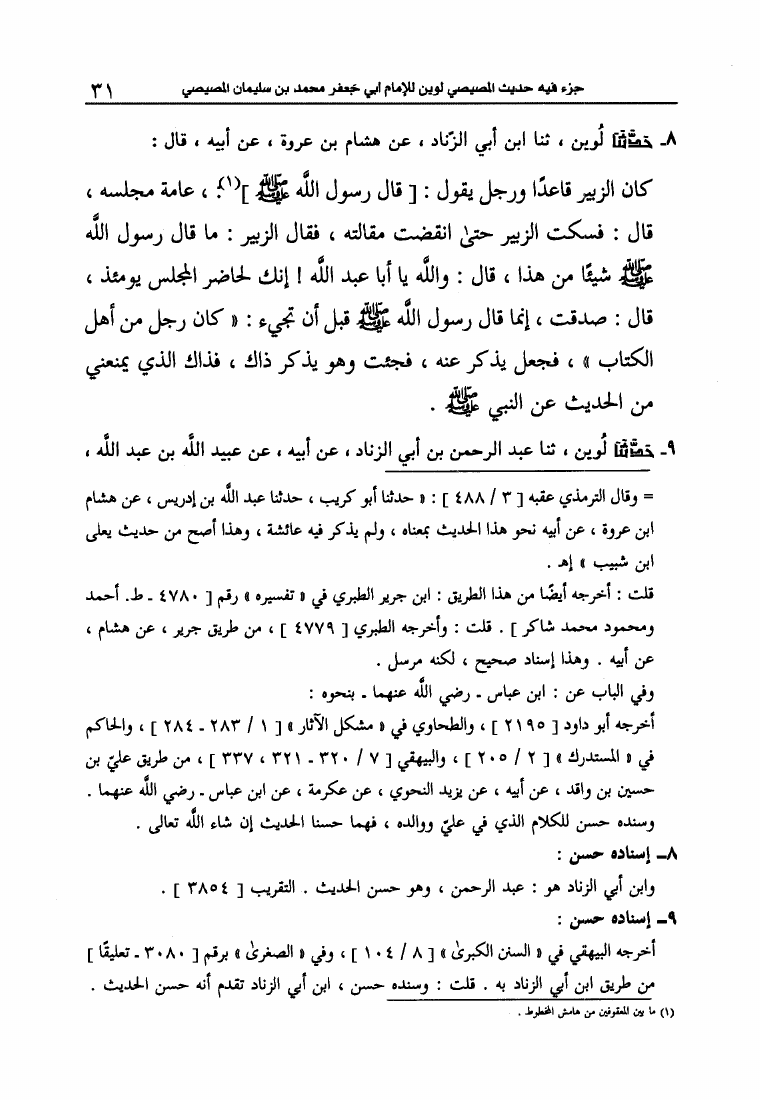 جزء فيه حديث المصيصي لوين للإمام أبي جعفر محمد بن سليمان المصيصي ٣١
٨ـ حَدَّثَنَا لُوين ، ثنا ابن أبي الزّناد ، عن هشام بن عروة ، عن أبيه ، قال :
كان الزبير قاعدًا ورجل يقول : [ قال رسول اللَّه ﷺ ](١) ، عامة مجلسه ،
قال : فسكت الزبير حتىٰ انقضت مقالته ، فقال الزبير : ما قال رسول اللَّه
ﷺ شيئًا من هذا ، قال : واللَّه يا أبا عبد اللَّه ! إنك لحاضر المجلس يومئذ ،
قال : صدقت ، إنما قال رسول اللَّه ﷺ قبل أن تجيء : « كان رجل من أهل
الكتاب » ، فجعل يذكر عنه ، فجئت وهو يذكر ذاك ، فذاك الذي يمنعني
من الحديث عن النبي ﷺ .
٩ـ حَدَّثَنَا لُوين ، ثنا عبد الرحمن بن أبي الزناد ، عن أبيه ، عن عبيد اللَّه بن عبد اللَّه ،
= وقال الترمذي عقبه [ ٣ / ٤٨٨ ] : « حدثنا أبو كريب ، حدثنا عبد اللَّه بن إدريس ، عن هشام
ابن عروة ، عن أبيه نحو هذا الحديث بمعناه ، ولم يذكر فيه عائشة ، وهذا أصح من حديث يعلى
ابن شبيب » إهـ .
قلت : أخرجه أيضًا من هذا الطريق : ابن جرير الطبري في « تفسيره » رقم [ ٤٧٨٠ ـ ط. أحمد
ومحمود محمد شاكر ] . قلت : وأخرجه الطبري [ ٤٧٧٩ ] ، من طريق جرير ، عن هشام ،
عن أبيه . وهذا إسناد صحيح ، لكنه مرسل .
وفي الباب عن : ابن عباس ـ رضي اللَّه عنهما ـ بنحوه :
أخرجه أبو داود [ ٢١٩٥ ] ، والطحاوي في « مشكل الآثار » [ ١ / ٢٨٣ ـ ٢٨٤ ] ، والحاكم
في « المستدرك » [ ٢ / ٢٠٥ ] ، والبيهقي [ ٧ / ٣٢٠ ـ ٣٢١ ، ٣٣٧ ] ، من طريق عليّ بن
حسين بن واقد ، عن أبيه ، عن يزيد النحوي ، عن عكرمة ، عن ابن عباس ـ رضي اللَّه عنهما .
وسنده حسن للكلام الذي في عليّ ووالده ، فهما حسنا الحديث إن شاء اللَّه تعالى .
٨ـ إسناده حسن :
وابن أبي الزناد هو : عبد الرحمن ، وهو حسن الحديث . التقريب [ ٣٨٥٤ ] .
٩ـ إسناده حسن :
أخرجه البيهقي في « السنن الكبرىٰ » [ ٨ / ١٠٤ ] ، وفي « الصغرىٰ » برقم [ ٣٠٨٠ ـ تعليقًا ]
من طريق ابن أبي الزناد به . قلت : وسنده حسن ، ابن أبي الزناد تقدم أنه حسن الحديث .
(١) ما بين المعقوفين من هامش المخطوط .